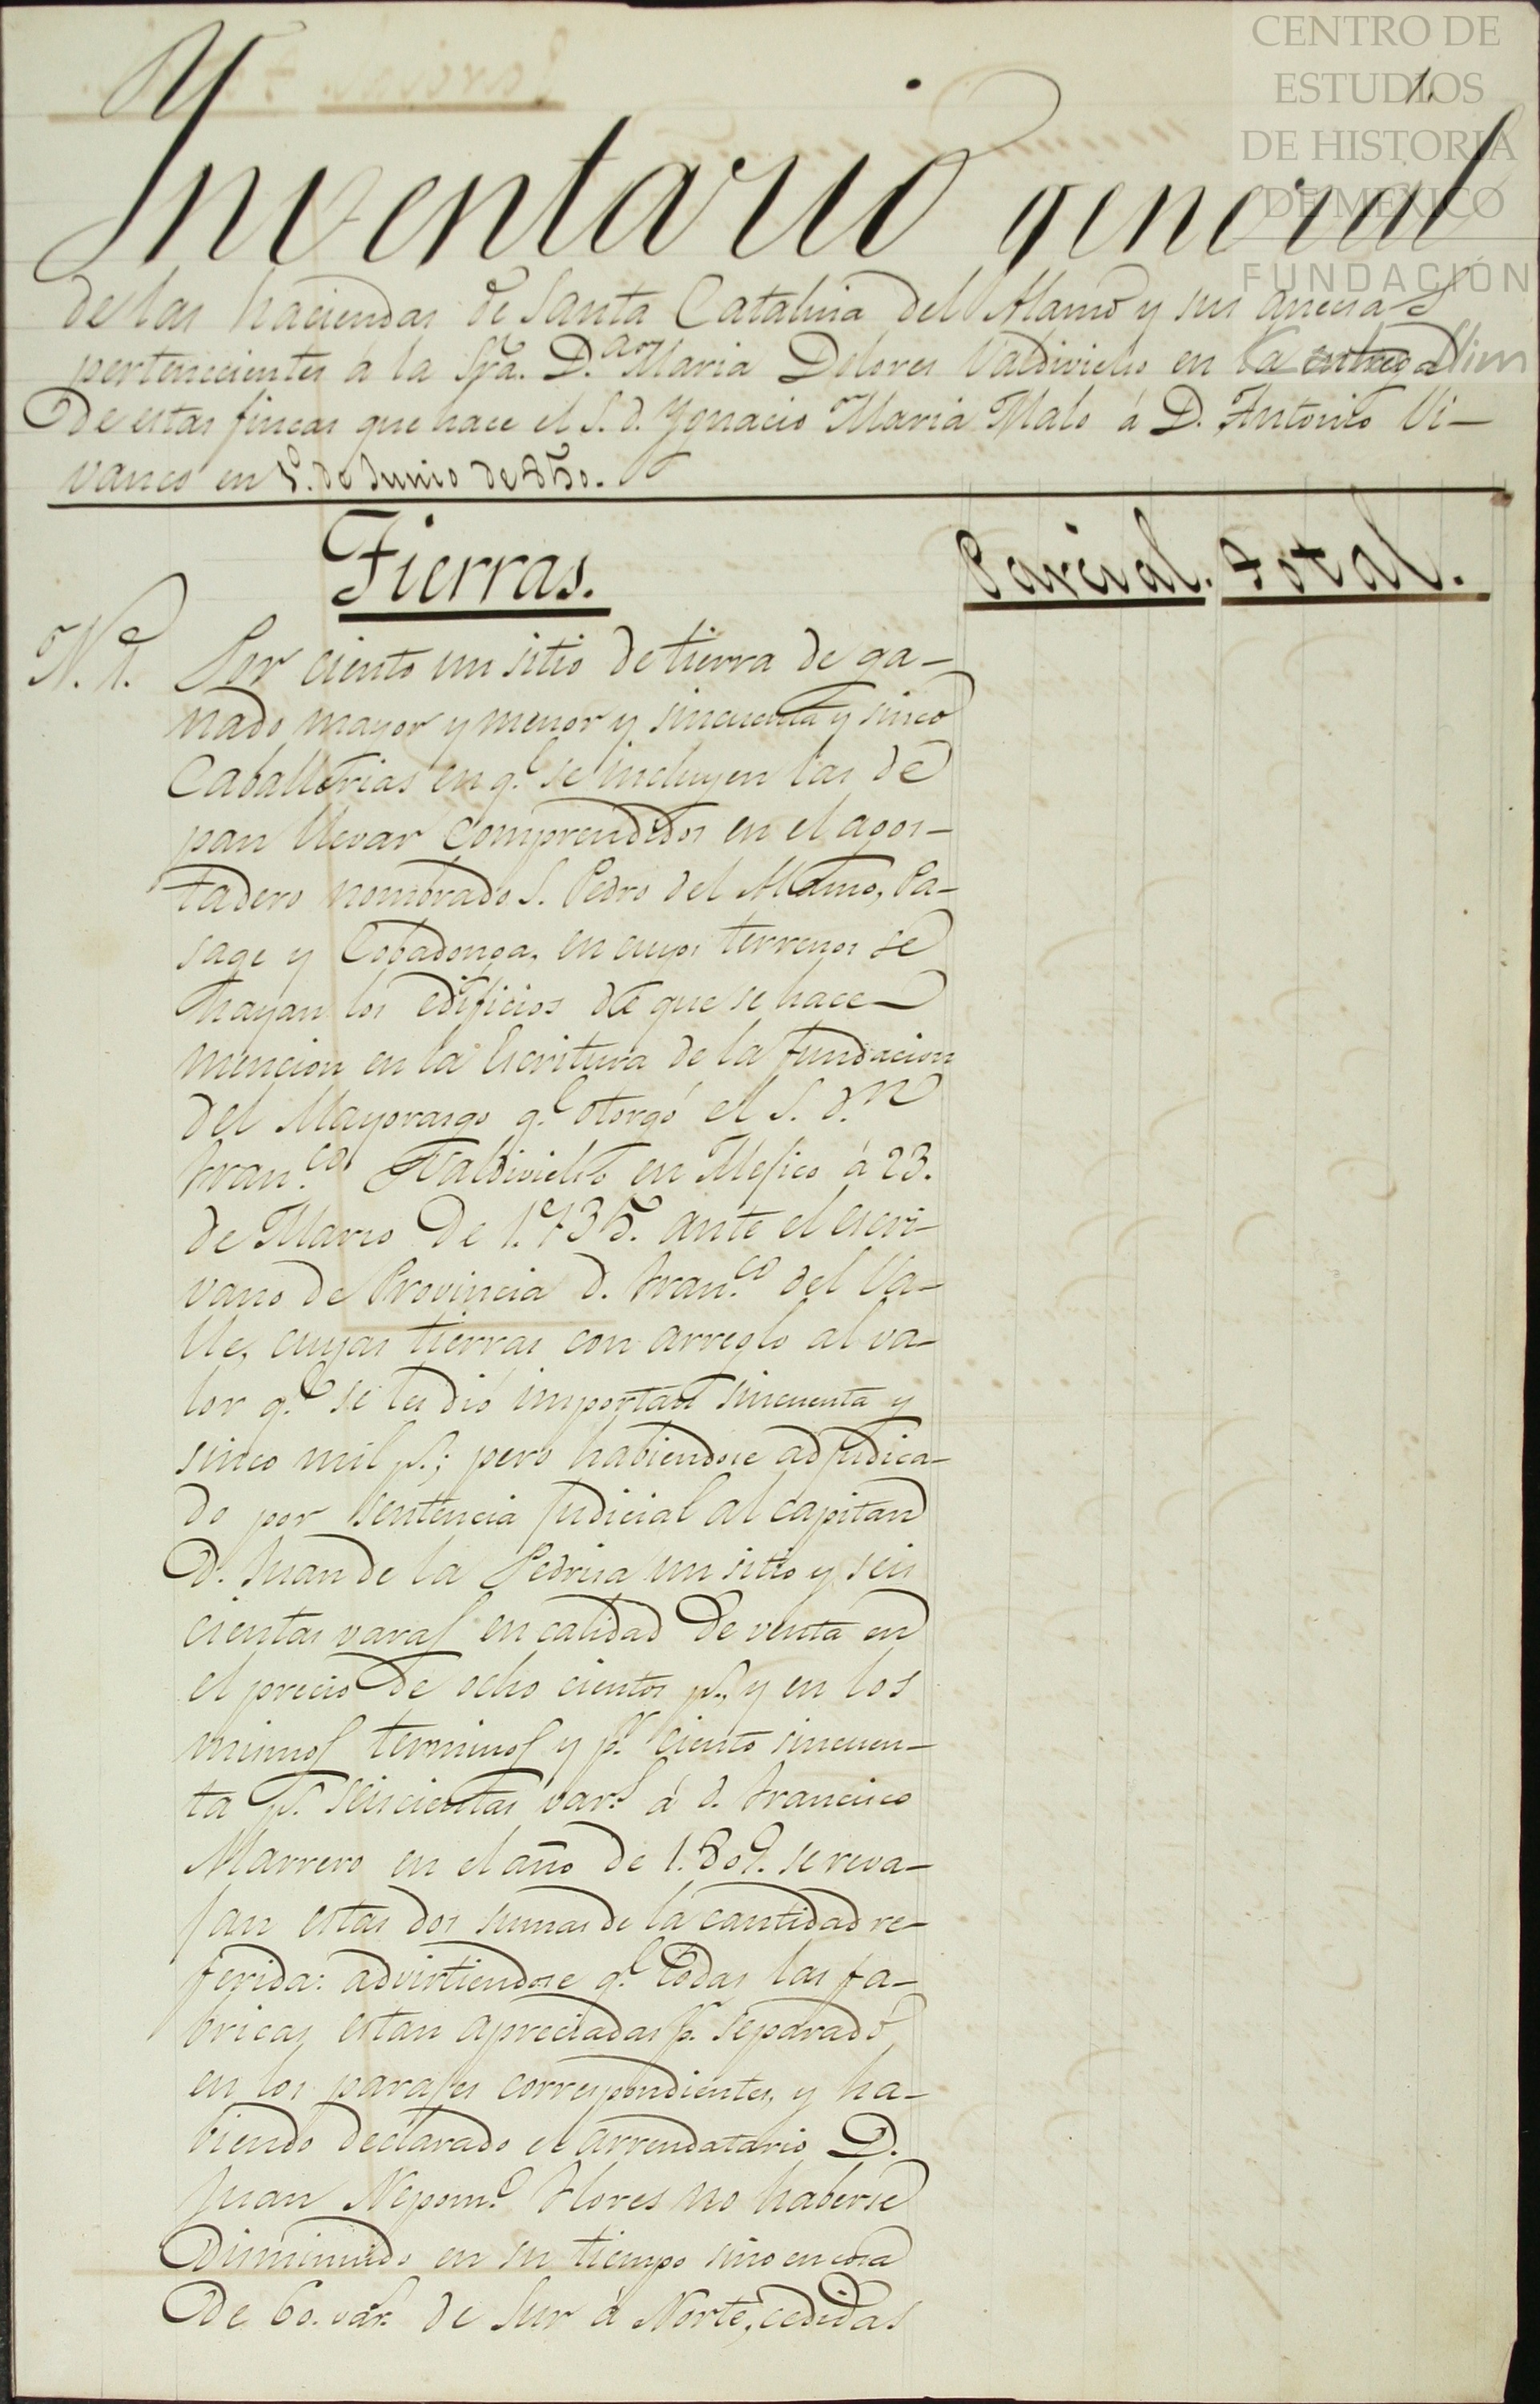 CENTRO DE
ESTUDIOS
DE HISTORIA
DE MÉXICO
FUNDACIÓN
1.
Inventario general
de las haciendas de Santa Catalina del Alamo y sus anecsas
pertenecientes á la Sra. D.a Maria Dolores Valdivielso en la entrega
De estas fincas que hace el S. D. Ygnacio Maria Malo á D. Antonio Vi-
vanco en 1.º de Junio de 850.
Tierras.
Parcial. Total.
N. 1. Por ciento un sitio de tierra de ga-
nado mayor y menor y sincuenta y sinco
Caballerias en q.e se incluyen las de
pan llevar comprendidos en el agos-
tadero nombrado S. Pedro del Alamo, Pa-
sage y Cobadonga, en cuyos terrenos se
hayan los edificios de que se hace
mencion en la Escritura de la fundacion
del Mayorasgo q.e otorgó el S. d.n
Fran.co Valdivielso en Mejico á 23.
de Marzo De 1.735. ante el escri-
vano de Provincia D. Fran.co del Va-
lle, cuyas tierras con arreglo al va-
lor q.e se les dió importan sincuenta y
sinco mil p.s; pero habiendose adjudica-
do por sentencia judicial al capitan
D. Juan de la Pedrisa un sitio y seis
cientas varas en calidad De venta en
el precio de ocho cientos p.s, y en los
mismos terminos y p.r ciento sincuen-
ta p.s seiscientas var.s á d. Francisco
Marrero en el año de 1.809. se reva-
jan estas dos sumas de la cantidad re-
ferida: advirtiendose q.e todas las fa-
bricas estan apreciadas p.r separado
en los parajes correspondientes, y ha-
biendo declarado el arrendatario D.
Juan Nepom.o Flores no haberse
Disminuido en su tiempo sino en cosa
De 60. var.s de Sur á Norte, cedidas